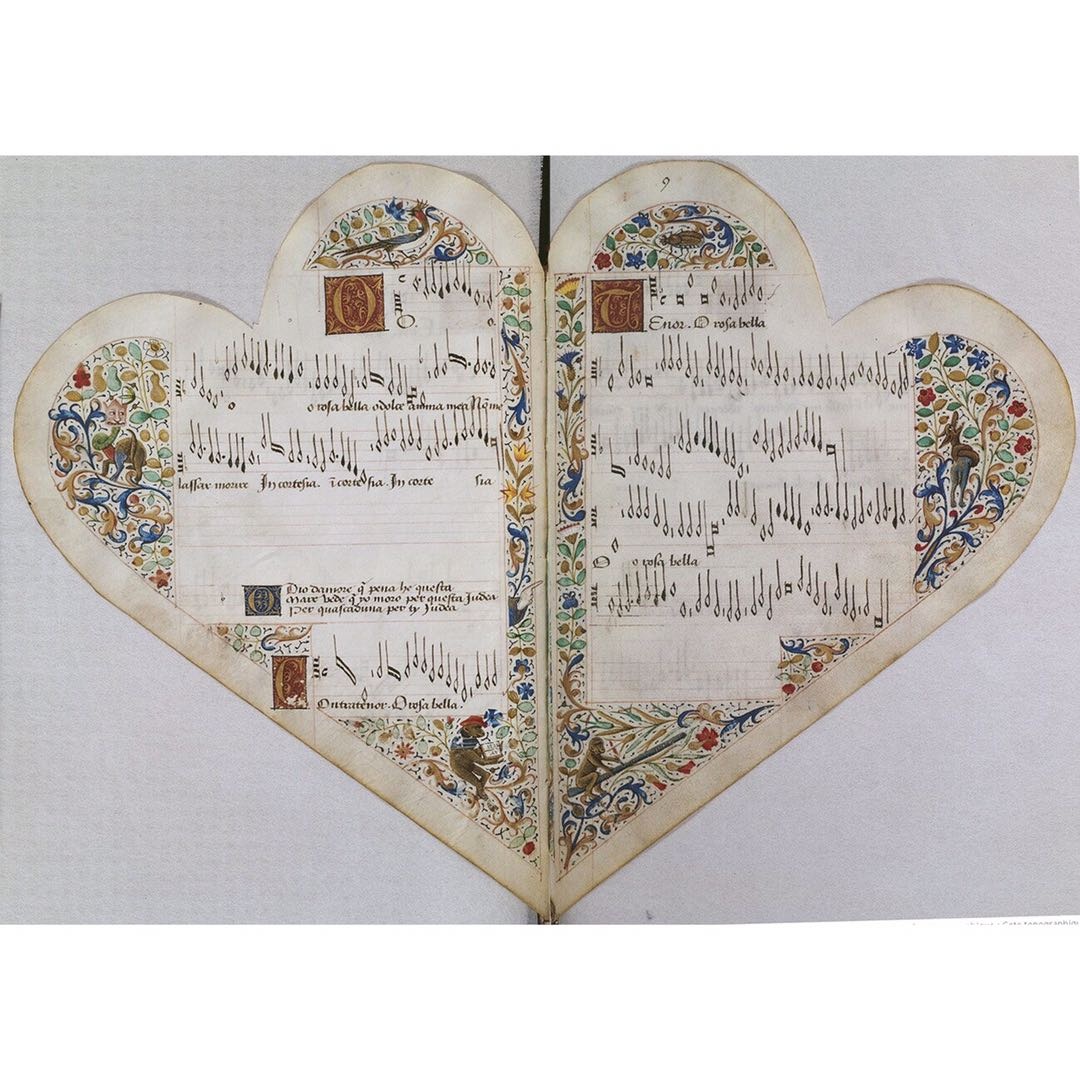 O.
o rosa bella o dolce anima mea Nõ me
lassar morire In cortesia. ĩ cortesia. In corte sia
O Dio damore q̃ pena he questa
Mare vede q̃ yo more per questa Iudea
Per quascaduna per ty Iudea
Contratenor. O rosa bella.
9
TEnor. O rosa bella
O o rosa bella